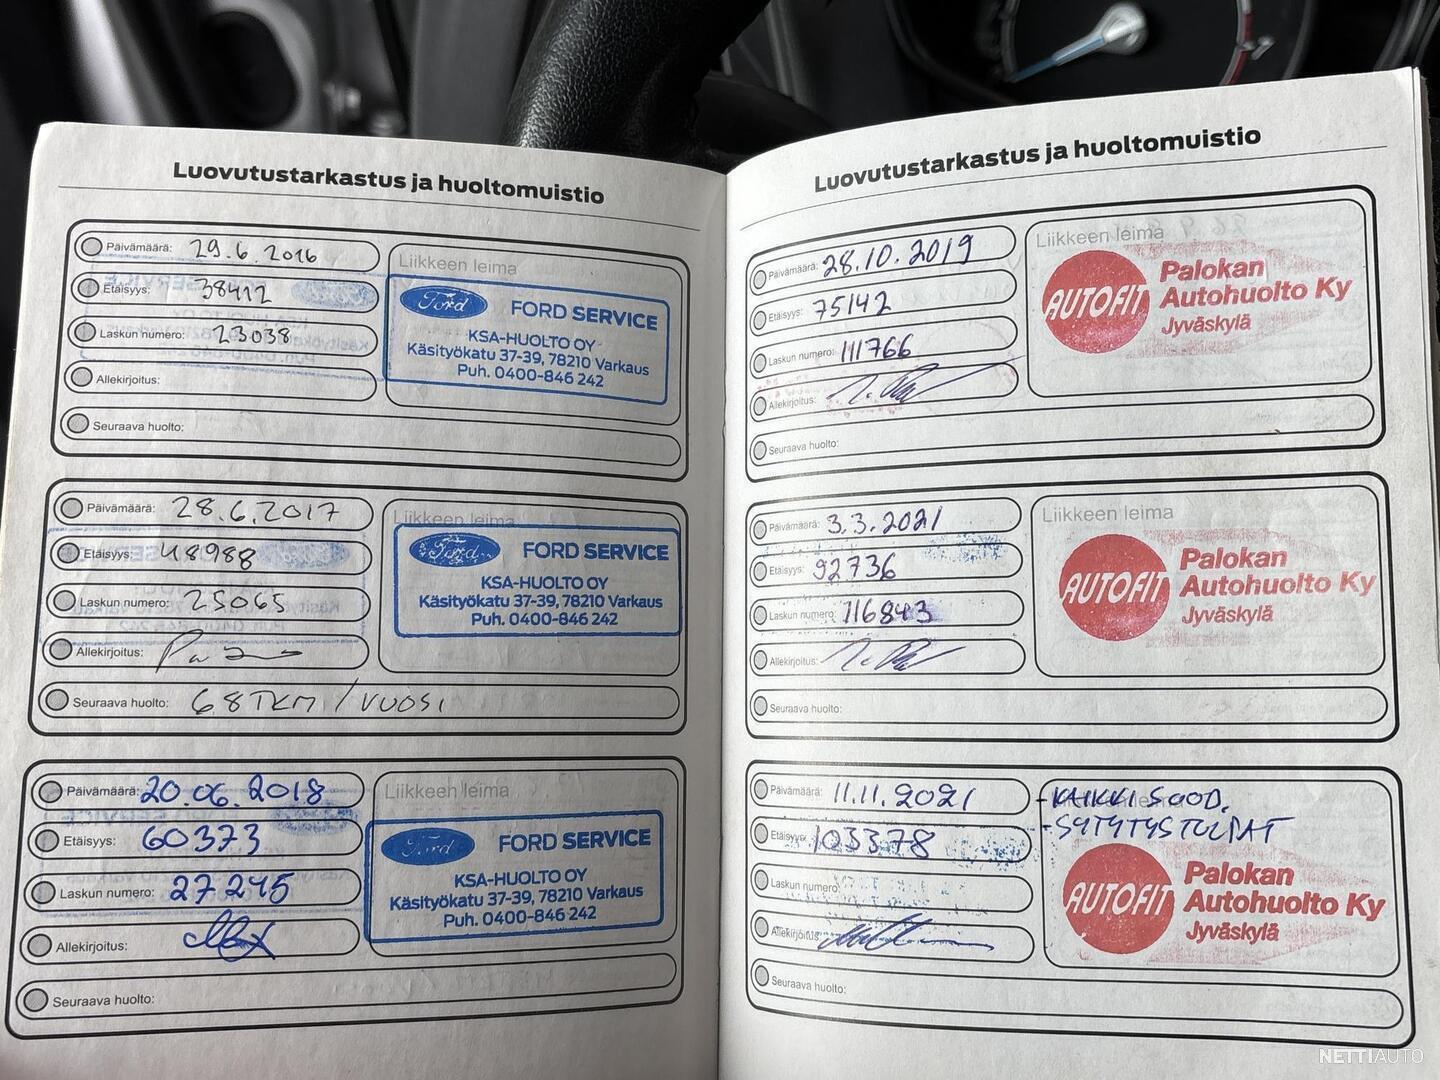 Luovutustarkastus ja huoltomuistio
Päivämäärä: 29.6.2016
Etäisyys: 38412
Laskun numero: 23038
Allekirjoitus:
Seuraava huolto:
Liikkeen leima
Ford FORD SERVICE
KSA-HUOLTO OY
Käsityökatu 37-39, 78210 Varkaus
Puh. 0400-846 242
Päivämäärä: 28.6.2017
Etäisyys: 48988
Laskun numero: 25065
Allekirjoitus:
Seuraava huolto: 68TKM/VUOSI
Liikkeen leima
Ford FORD SERVICE
KSA-HUOLTO OY
Käsityökatu 37-39, 78210 Varkaus
Puh. 0400-846 242
Päivämäärä: 20.06.2018
Etäisyys: 60373
Laskun numero: 27245
Allekirjoitus:
Seuraava huolto:
Liikkeen leima
Ford FORD SERVICE
KSA-HUOLTO OY
Käsityökatu 37-39, 78210 Varkaus
Puh. 0400-846 242
Luovutustarkastus ja huoltomuistio
Päivämäärä: 28.10.2019
Etäisyys: 75142
Laskun numero: 111766
Allekirjoitus:
Seuraava huolto:
Liikkeen leima
AUTOFIT
Palokan
Autohuolto Ky
Jyväskylä
Päivämäärä: 3.3.2021
Etäisyys: 92736
Laskun numero: 116843
Allekirjoitus:
Seuraava huolto:
Liikkeen leima
AUTOFIT
Palokan
Autohuolto Ky
Jyväskylä
Päivämäärä: 11.11.2021
Etäisyys: 103378
Laskun numero:
Allekirjoitus:
Seuraava huolto:
-KAIKKI SUOD.
-SYTYTYSTULPAT
AUTOFIT
Palokan
Autohuolto Ky
Jyväskylä
NETTIAUTO